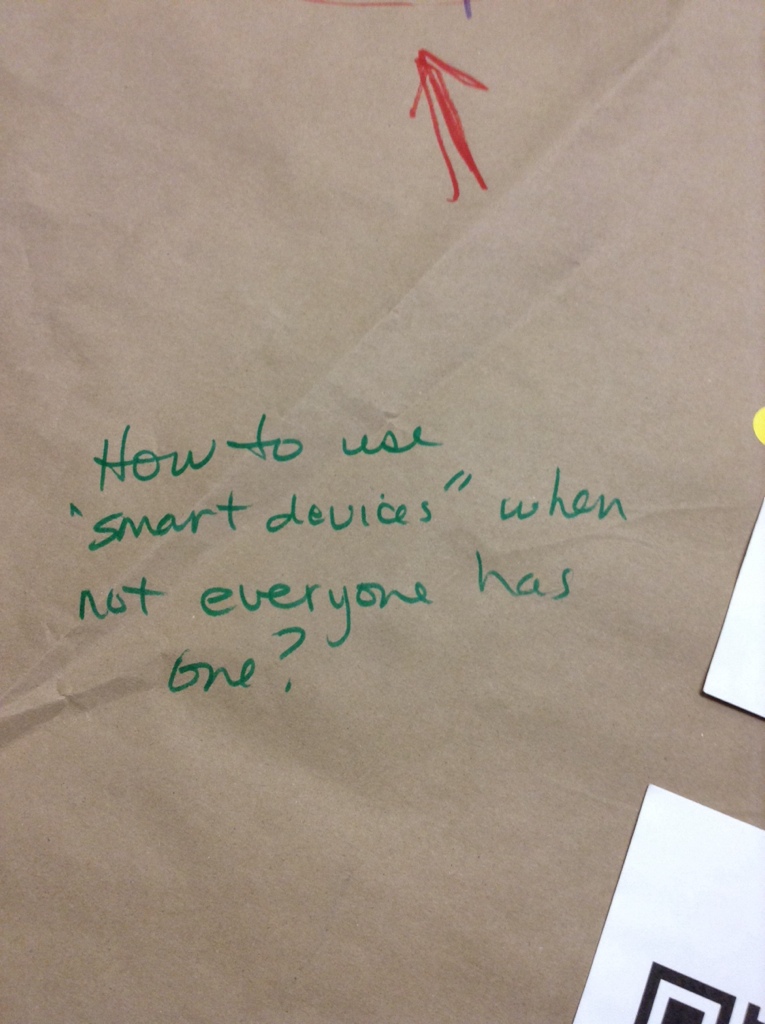 How to use
"smart devices" when
not everyone has
one?